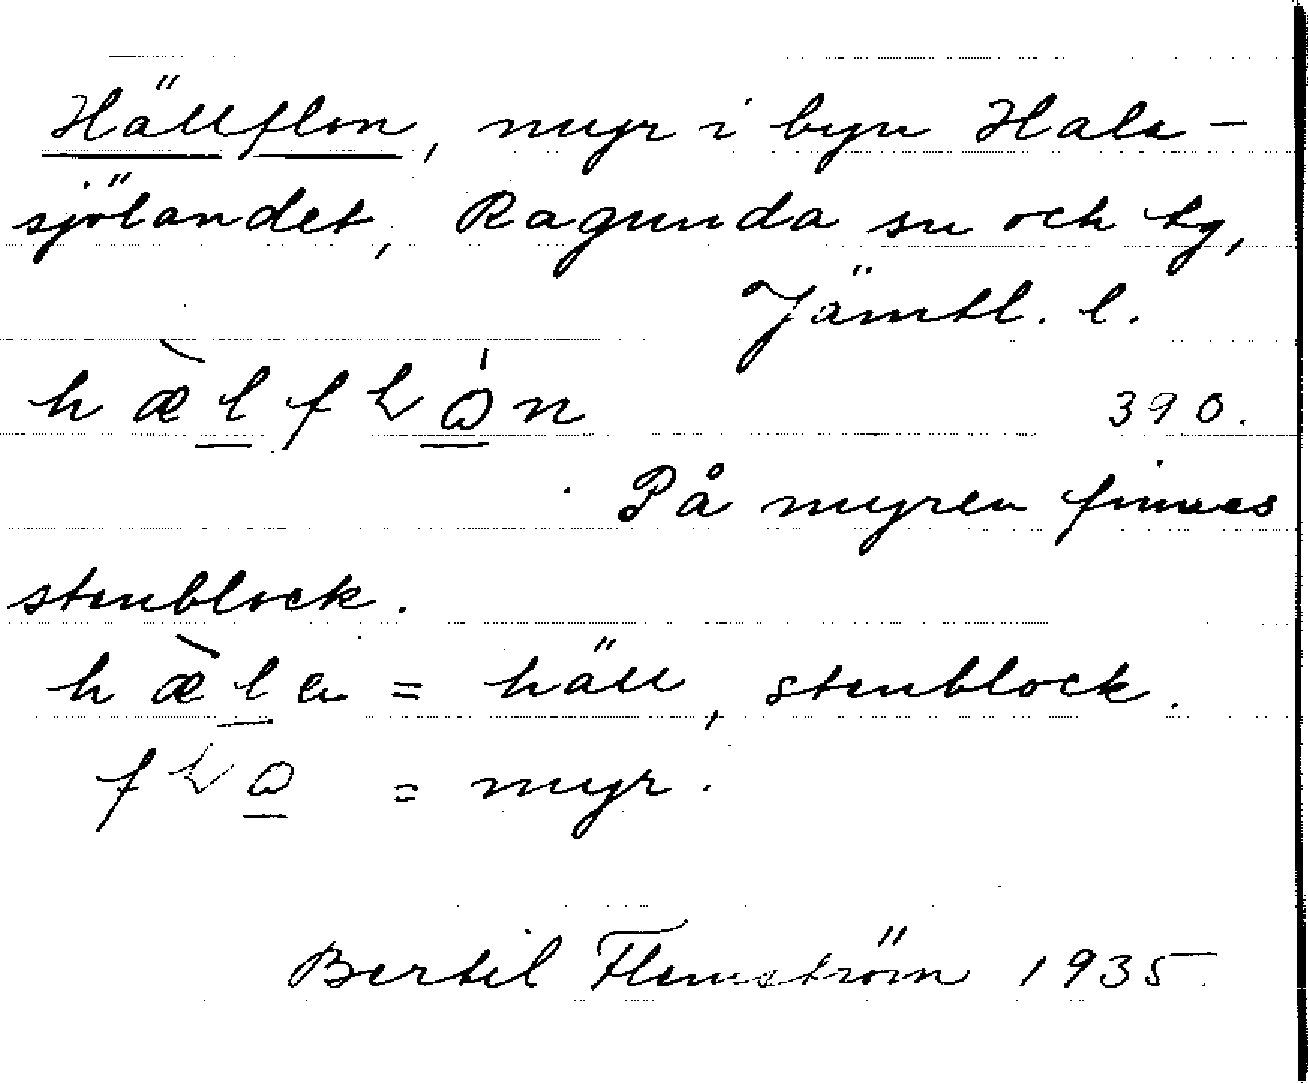 Hällflon, myr i byn Hals-
sjölandet, Ragunda sn och tg,
Jämtl. l.
hæ̀l̲fɫo̲̍n 390.
På myren finnes
stenblock.
hæ̀l̲a = häll, stenblock.
fɫo̲ = myr.
Bertil Flemström 1935